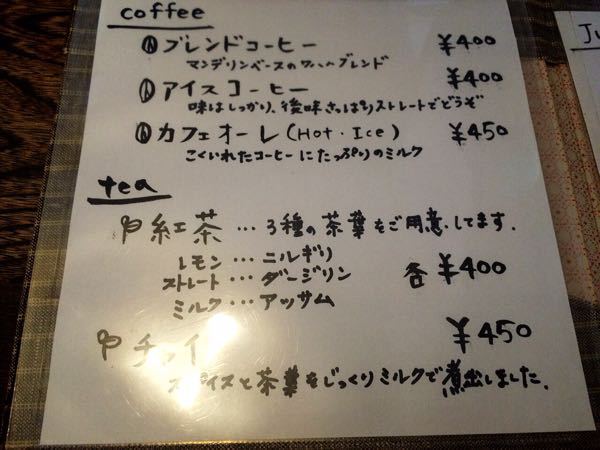 coffee
ブレンドコーヒー ¥400
マンデリンベースのワームブレンド
アイスコーヒー ¥400
味はしっかり、後味さっぱりストレートでどうぞ
カフェオーレ(Hot・Ice) ¥450
こくいれたコーヒーにたっぷりのミルク
tea
紅茶…3種の茶葉をご用意してます.
レモン…ニルギリ
ストレート…ダージリン 各¥400
ミルク…アッサム
チャイ ¥450
スパイスと茶葉をじっくりミルクで煮出しました.